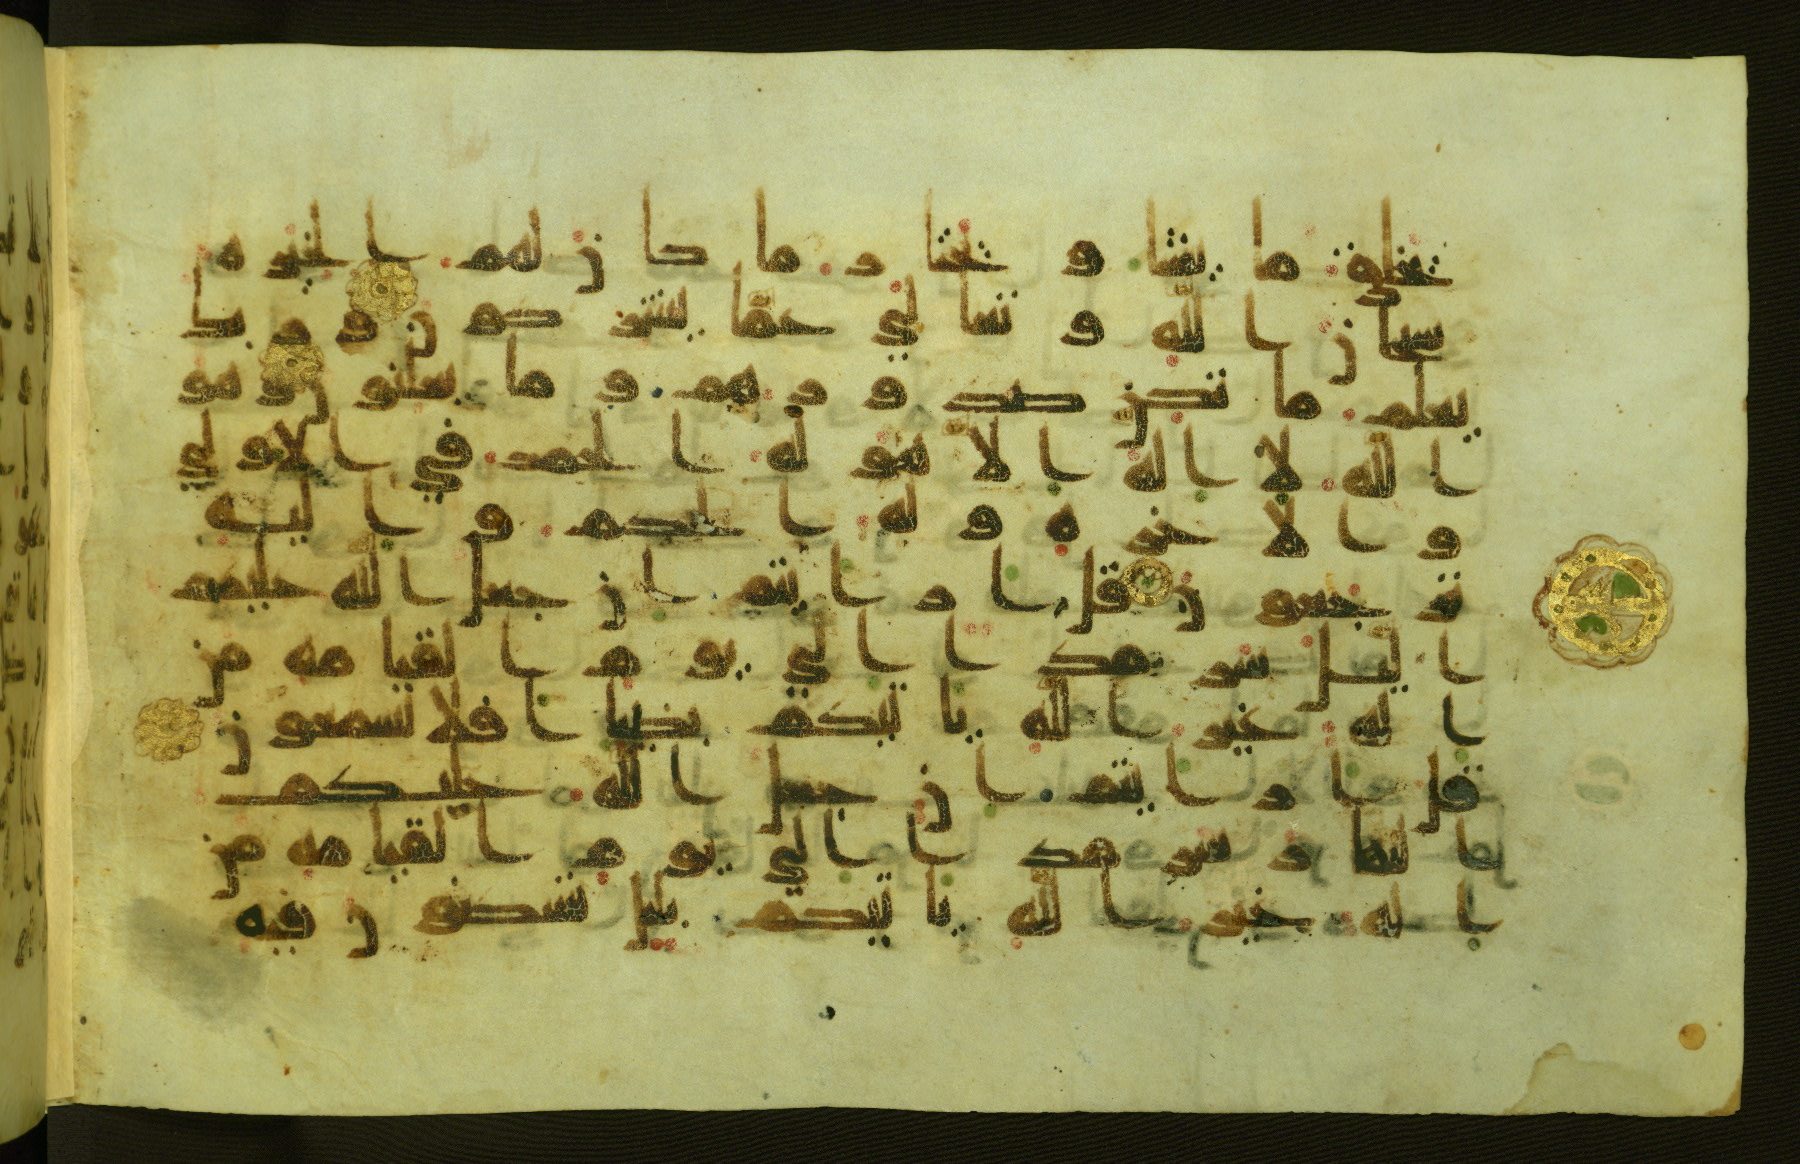 يخلق ما يشا و يختار ما كان لهم الخيره
سبحان الله و تعالي عما يشركون و ربك
يعلم ما تكن صدورهم و ما يعلنون و هو
الله لا اله الا هو له الحمد في الاولي
و الاخره و له الحكم و اليه
ترجعون قل ارايتم ان جعل الله عليكم
اليل سرمدا الي يوم القيامه من
اله غير الله ياتيكم بضيا افلا تسمعون
قل ارايتم ان جعل الله عليكم
النهار سرمدا الي يوم القيامه من
اله غير الله ياتيكم بليل تسكنون فيه